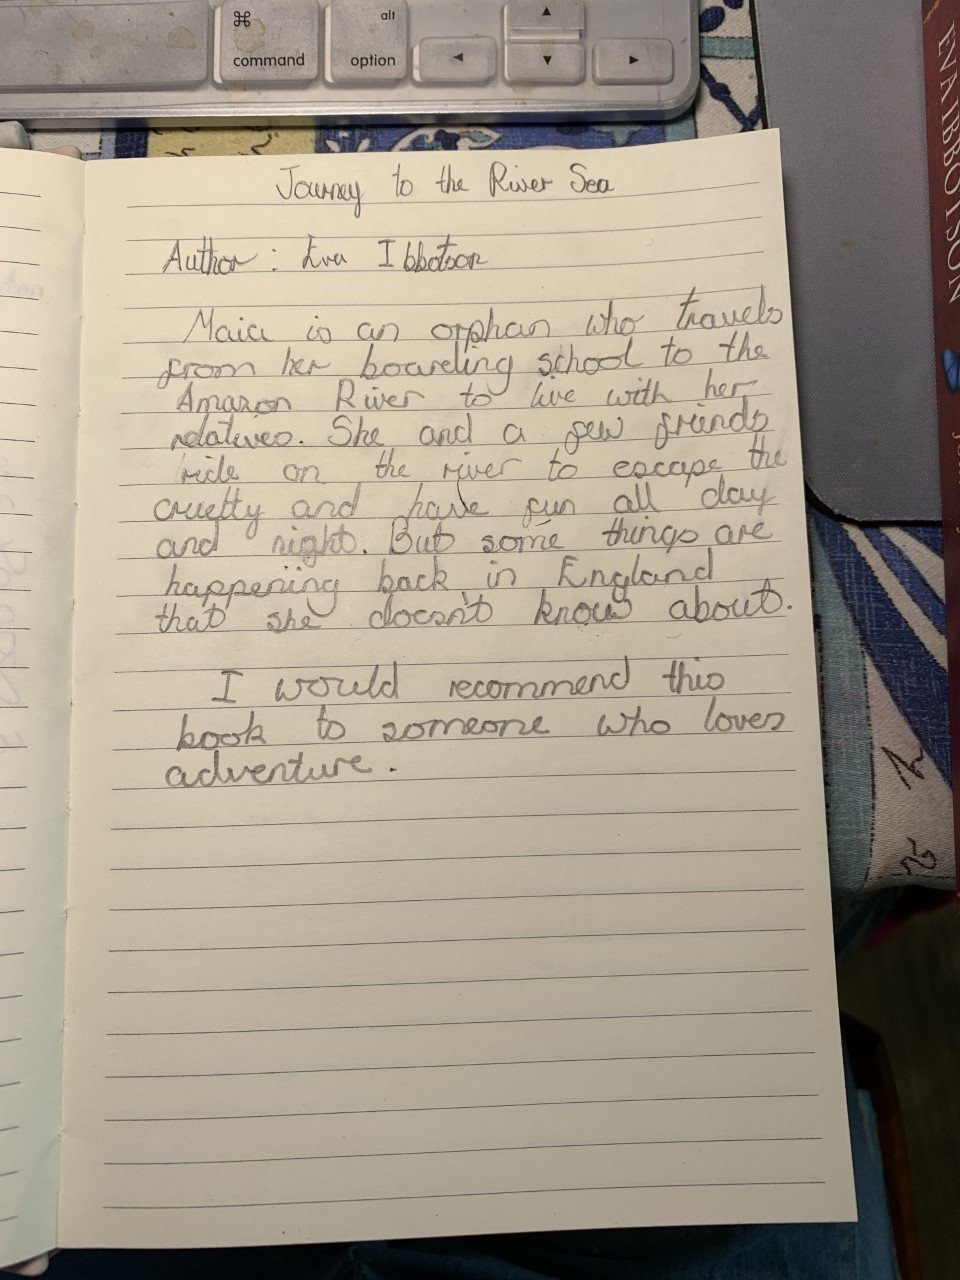 ⌘
command
alt
option
◄
▲
▼
►
EVA IBBOTSON
Journey to the River Sea
Author: Eva Ibbotson
Maia is an orphan who travels
from her boarding school to the
Amazon River to live with her
relatives. She and a few friends
ride on the river to escape the
cruelty and have fun all day
and night. But some things are
happening back in England
that she doesn't know about.
I would recommend this
book to someone who loves
adventure.